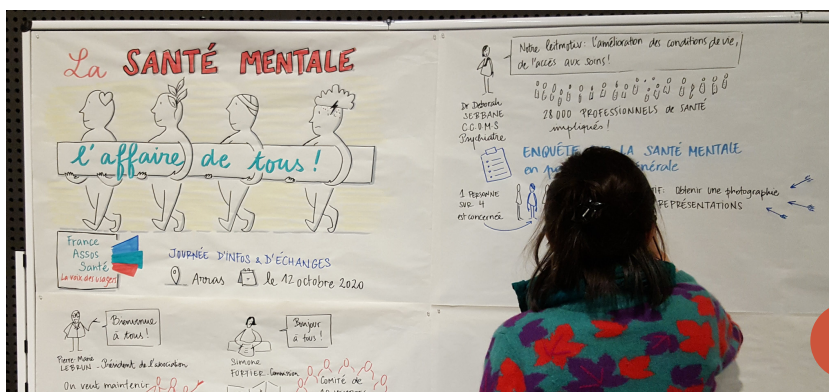 La SANTÉ MENTALE
l'affaire de tous !
France
Assos
Santé
La voix des usagers
JOURNÉE D'INFOS & D'ÉCHANGES
Arras le 12 octobre 2020
Bienvenue
à tous !
Pierre-Marie
LEBRUN - Président de l'association
Bonjour
à tous !
Simone
FORTIER Commission
On veut maintenir
Comité de
Notre leitmotiv : l'amélioration des conditions de vie,
de l'accès aux soins !
Dr Déborah
SEBBANE
C.C.O.M.S
Psychiatre
28 000 PROFESSIONNELS DE SANTÉ
impliqués !
ENQUÊTE LA SANTÉ MENTALE
en
1 PERSONNE
SUR 4
est concernée
Obtenir une photographie
REPRÉSENTATIONS